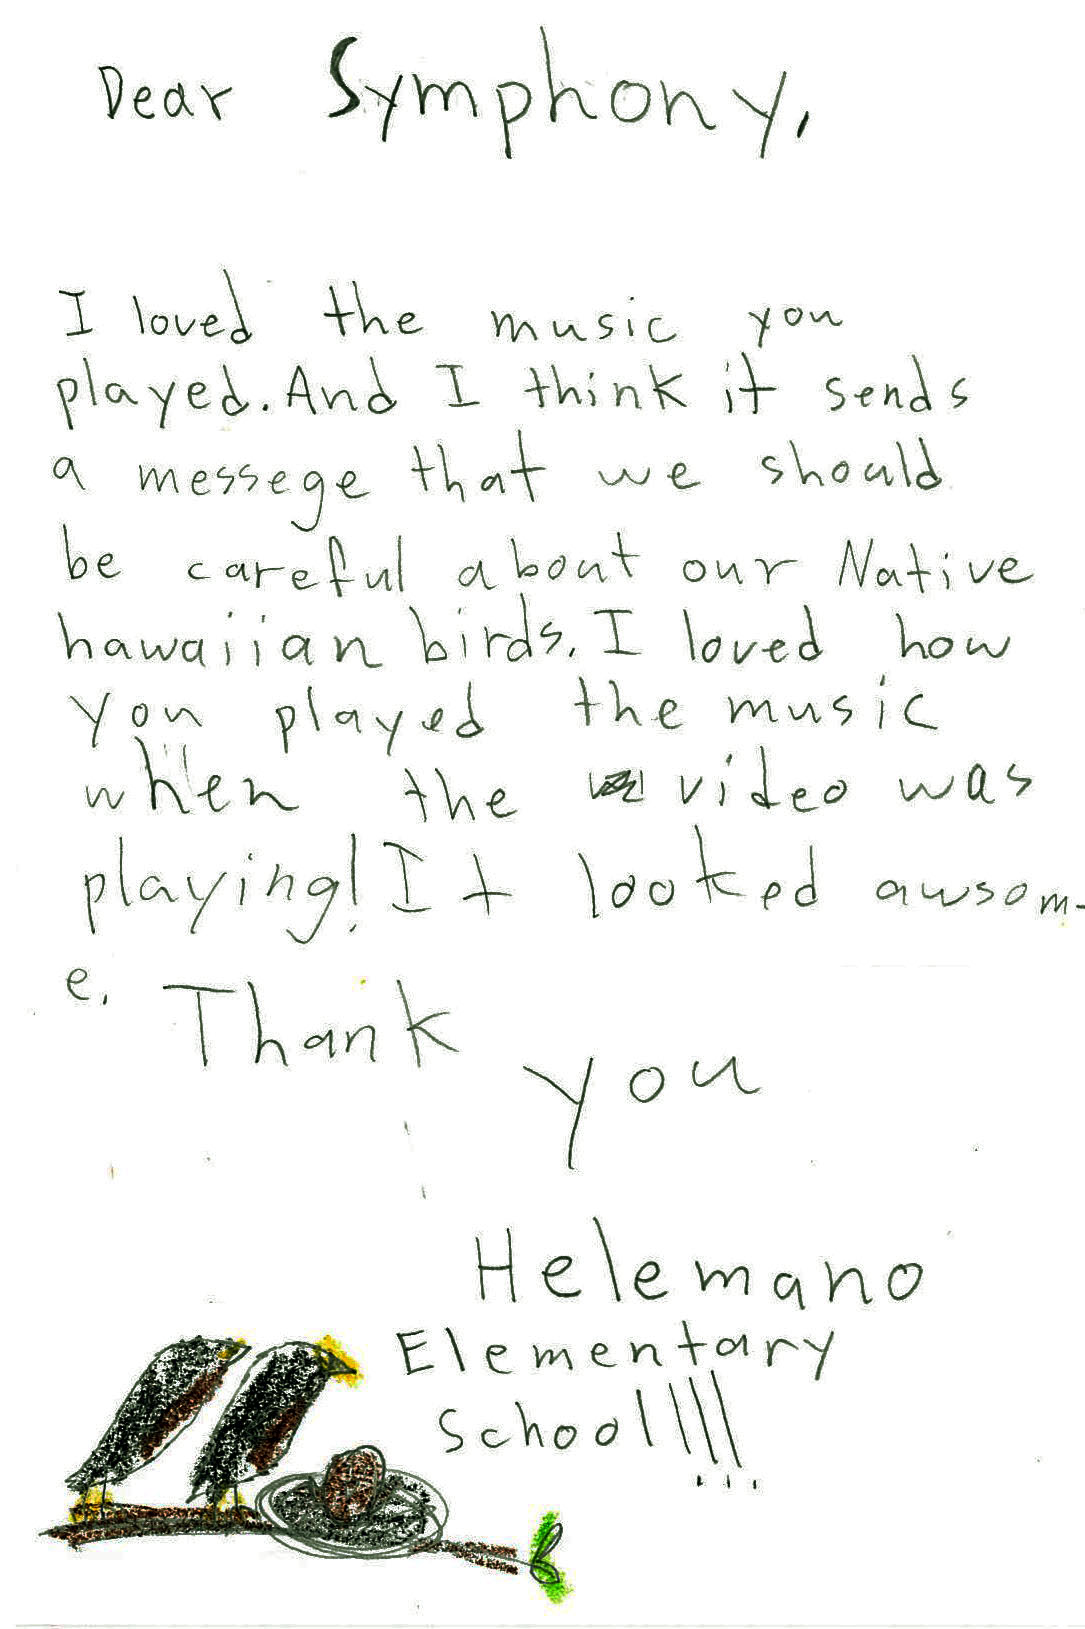 Dear Symphony,
I loved the music you
played. And I think it sends
a messege that we should
be careful about our Native
hawaiian birds. I loved how
you played the music
when the video was
playing! It looked awsom-
e. Thank
you
Helemano
Elementary
School!!!